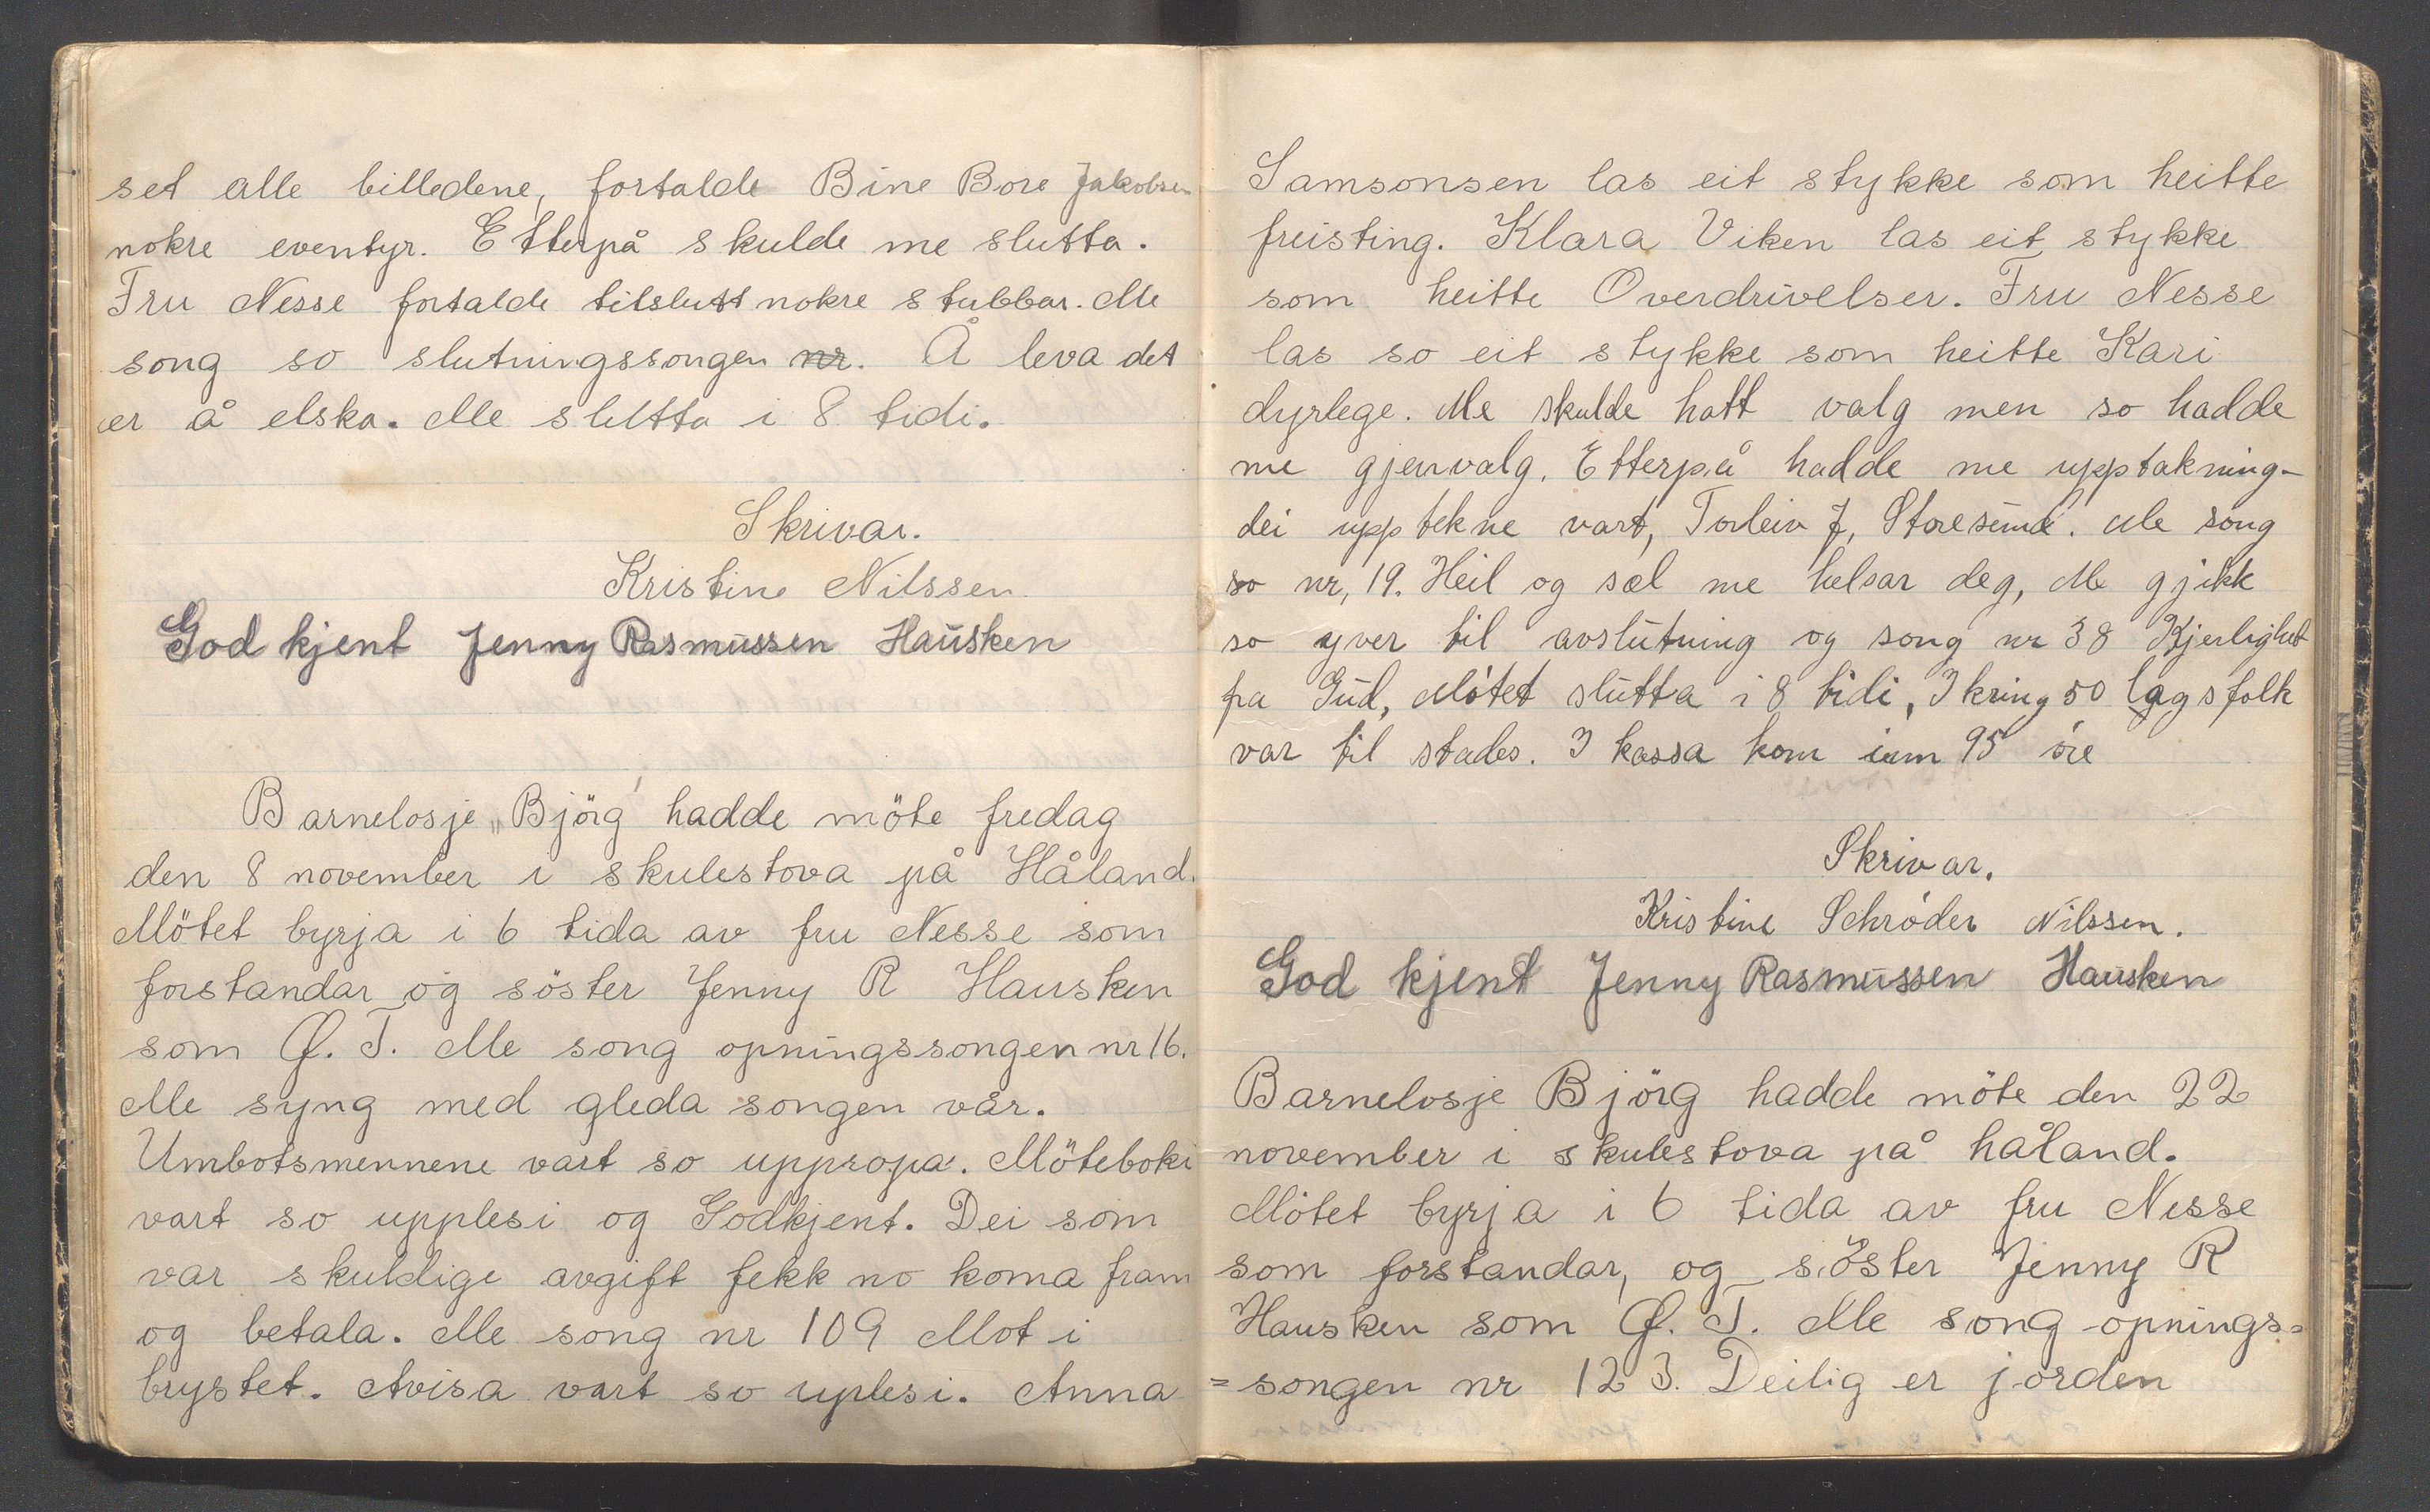 set alle billedene, fortalde Bine Bore Jakobsen
nokre eventyr. Etterpå skulde me slutta.
Fru Nesse fortalde tilslutt nokre stubbar. Me
song so slutningssongen nr. Å leva det
er å elska. Me slutta i 8 tidi.
Skrivar.
Kristine Nilssen.
God kjent Jenny Rasmussen Hausken
Barnelosje „Björg" hadde möte fredag
den 8 november i skulestova på Håland.
Mötet byrja i 6 tida av fru Nesse som
forstandar og söster Jenny R Hausken
som Ø. T. Me song opningssongen nr 16.
Me syng med gleda songen vår.
Umbotsmennene vart so uppropa. Möteboki
vart so upplesi og Godkjent. Dei som
var skuldige avgift fekk no koma fram
og betala. Me song nr 109 Mot i
brystet. Avisa vart so uplesi. Anna
Samsonsen las eit stykke som heitte
freisting. Klara Viken las eit stykke
som heitte Overdrivelser. Fru Nesse
las so eit stykke som heitte Kari
dyrlege. Me skulde hatt valg men so hadde
me gjenvalg. Etterpå hadde me upptakning-
dei upptekne vart, Torleiv J, Storesund. Me song
so nr, 19. Heil og sæl me helsar deg, Me gjekk
so yver til avslutning og song nr 38 Kjerlighet
fra Gud, Mötet slutta i 8 tidi, Ikring 50 lagsfolk
var til stades. I kassa kom inn 95 öre
Skrivar.
Kristine Schröder Nilssen.
God kjent Jenny Rasmussen Hausken
Barnelosje Björg hadde möte den 22
november i skulestova på håland.
Mötet byrja i 6 tida av fru Nesse
som forstandar, og söster Jenny R
Hausken som Ø. T. Me song opnings=
=songen nr 123. Deilig er jorden